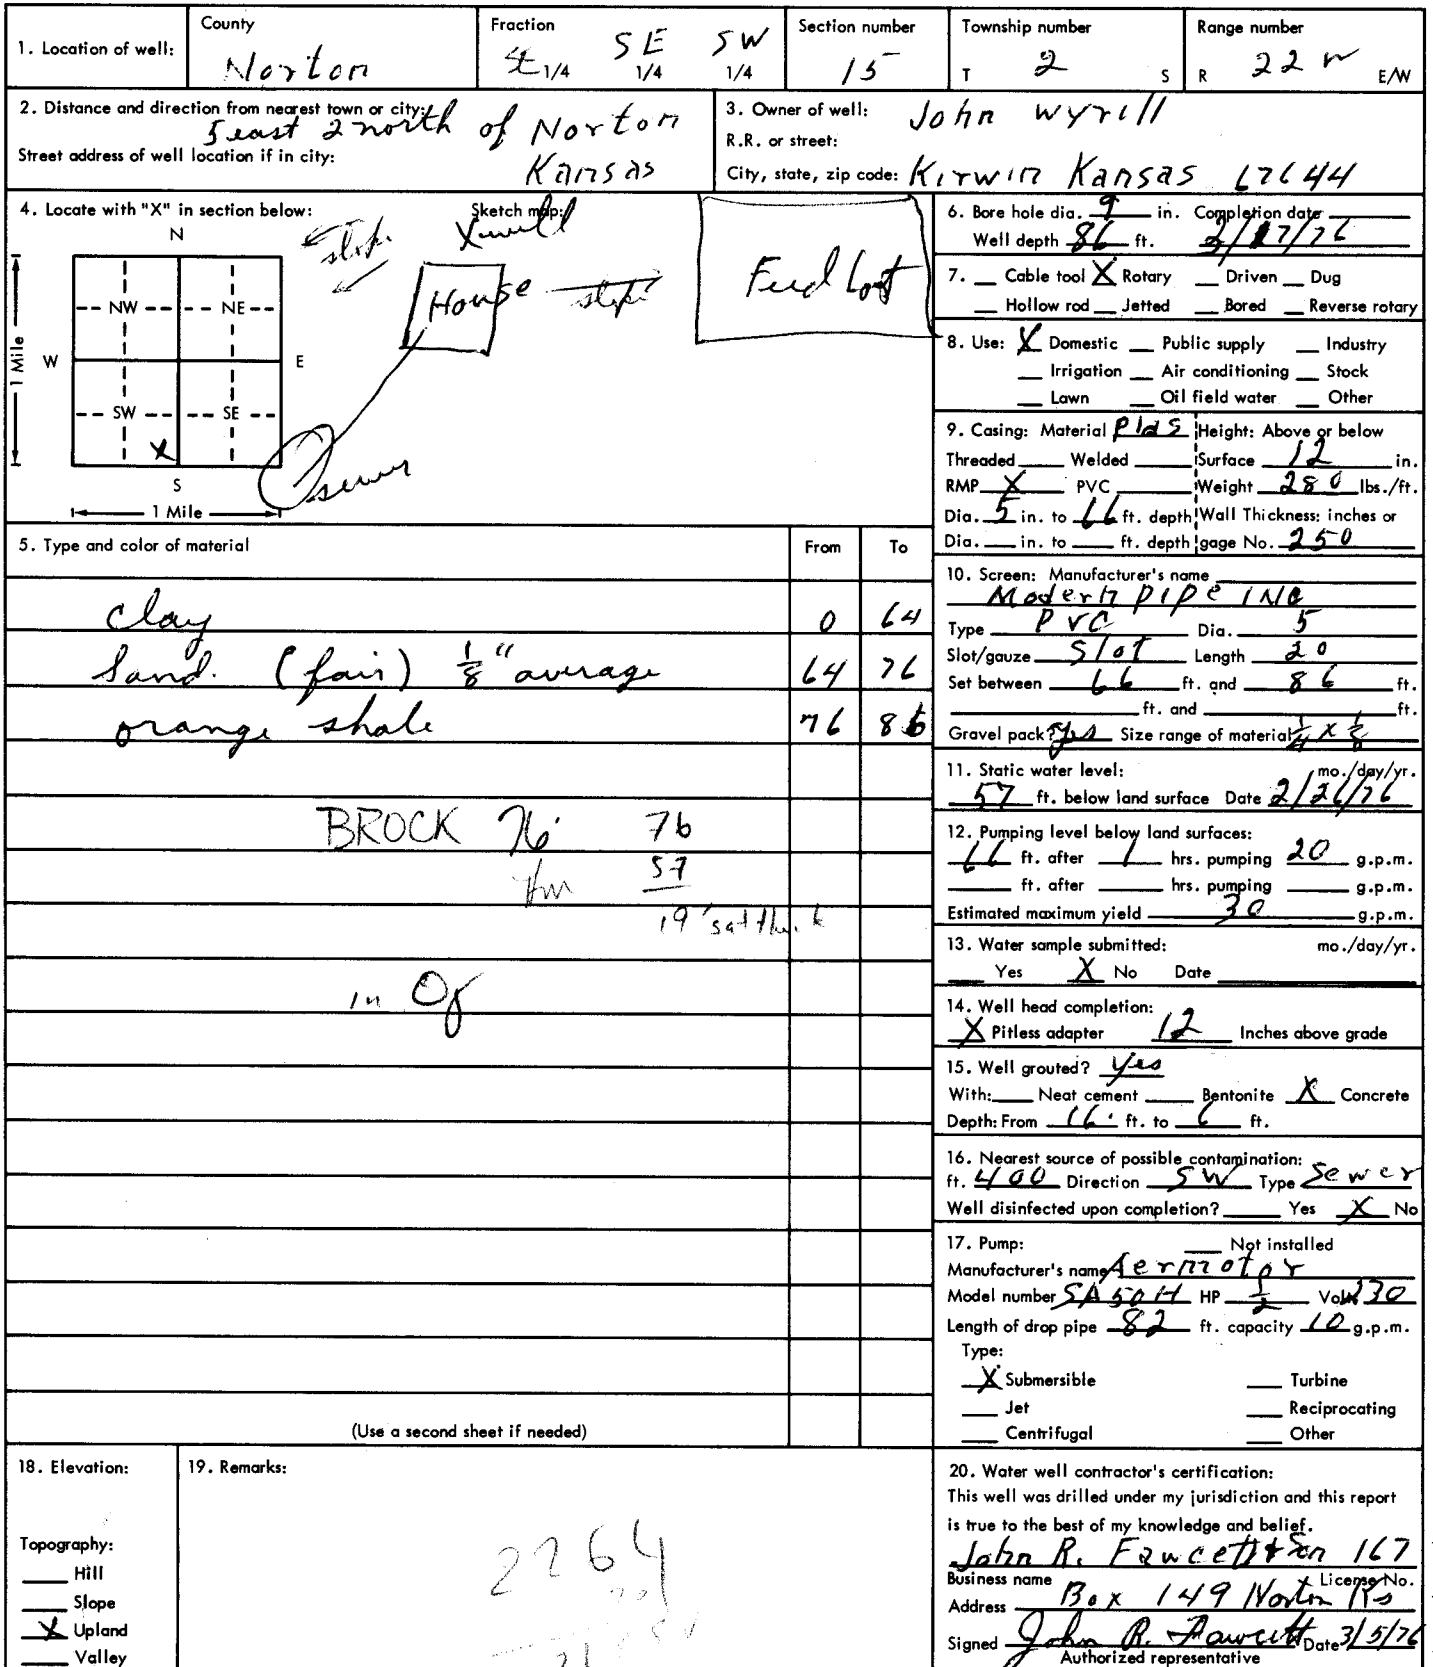 1. Location of well: County Norton Fraction 1/4 SE 1/4 SW 1/4 Section number 15 Township number T 2 S Range number R 22 W E/W
2. Distance and direction from nearest town or city: 5 east 2 north of Norton
Street address of well location if in city: Kansas
3. Owner of well: John Wyrill
R.R. or street:
City, state, zip code: Kirwin Kansas 67644
4. Locate with "X" in section below:
Sketch map:
N
NW NE
W E
SW SE
X
S
1 Mile
1 Mile
slope
X well
House
slope
Feed Lot
sewer
5. Type and color of material From To
clay 0 64
Sand. (fair) 1/8" average 64 76
orange shale 76 86
BROCK 76' 76
57
19' sat thick
in
(Use a second sheet if needed)
6. Bore hole dia. 9 in. Completion date
Well depth 86 ft. 2/17/76
7. Cable tool X Rotary Driven Dug
Hollow rod Jetted Bored Reverse rotary
8. Use: X Domestic Public supply Industry
Irrigation Air conditioning Stock
Lawn Oil field water Other
9. Casing: Material Plas Height: Above or below
Threaded Welded Surface 12 in.
RMP X PVC Weight 280 lbs./ft.
Dia. 5 in. to 66 ft. depth Wall Thickness: inches or
Dia. in. to ft. depth gage No. 250
10. Screen: Manufacturer's name
Modern Pipe INC
Type PVC Dia. 5
Slot/gauze Slot Length 20
Set between 66 ft. and 86 ft.
ft. and ft.
Gravel pack? yes Size range of material 1/4 x 1/8
11. Static water level: mo./day/yr.
57 ft. below land surface Date 2/26/76
12. Pumping level below land surfaces:
66 ft. after 1 hrs. pumping 20 g.p.m.
ft. after hrs. pumping g.p.m.
Estimated maximum yield 30 g.p.m.
13. Water sample submitted: mo./day/yr.
Yes X No Date
14. Well head completion:
X Pitless adapter 12 Inches above grade
15. Well grouted? yes
With: Neat cement Bentonite X Concrete
Depth: From 16 ft. to 6 ft.
16. Nearest source of possible contamination:
ft. 400 Direction SW Type Sewer
Well disinfected upon completion? Yes X No
17. Pump: Not installed
Manufacturer's name Aermotor
Model number SA50H HP 1/2 Volts 230
Length of drop pipe 82 ft. capacity 10 g.p.m.
Type:
X Submersible Turbine
Jet Reciprocating
Centrifugal Other
18. Elevation:
Topography:
Hill
Slope
X Upland
Valley
19. Remarks:
2264
20. Water well contractor's certification:
This well was drilled under my jurisdiction and this report
is true to the best of my knowledge and belief.
John R. Fawcett & Son 167
Business name License No.
Address Box 149 Norton Ks
Signed John R. Fawcett Date 3/5/76
Authorized representative